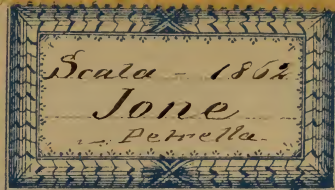 Scala - 1862
Jone
Petrella